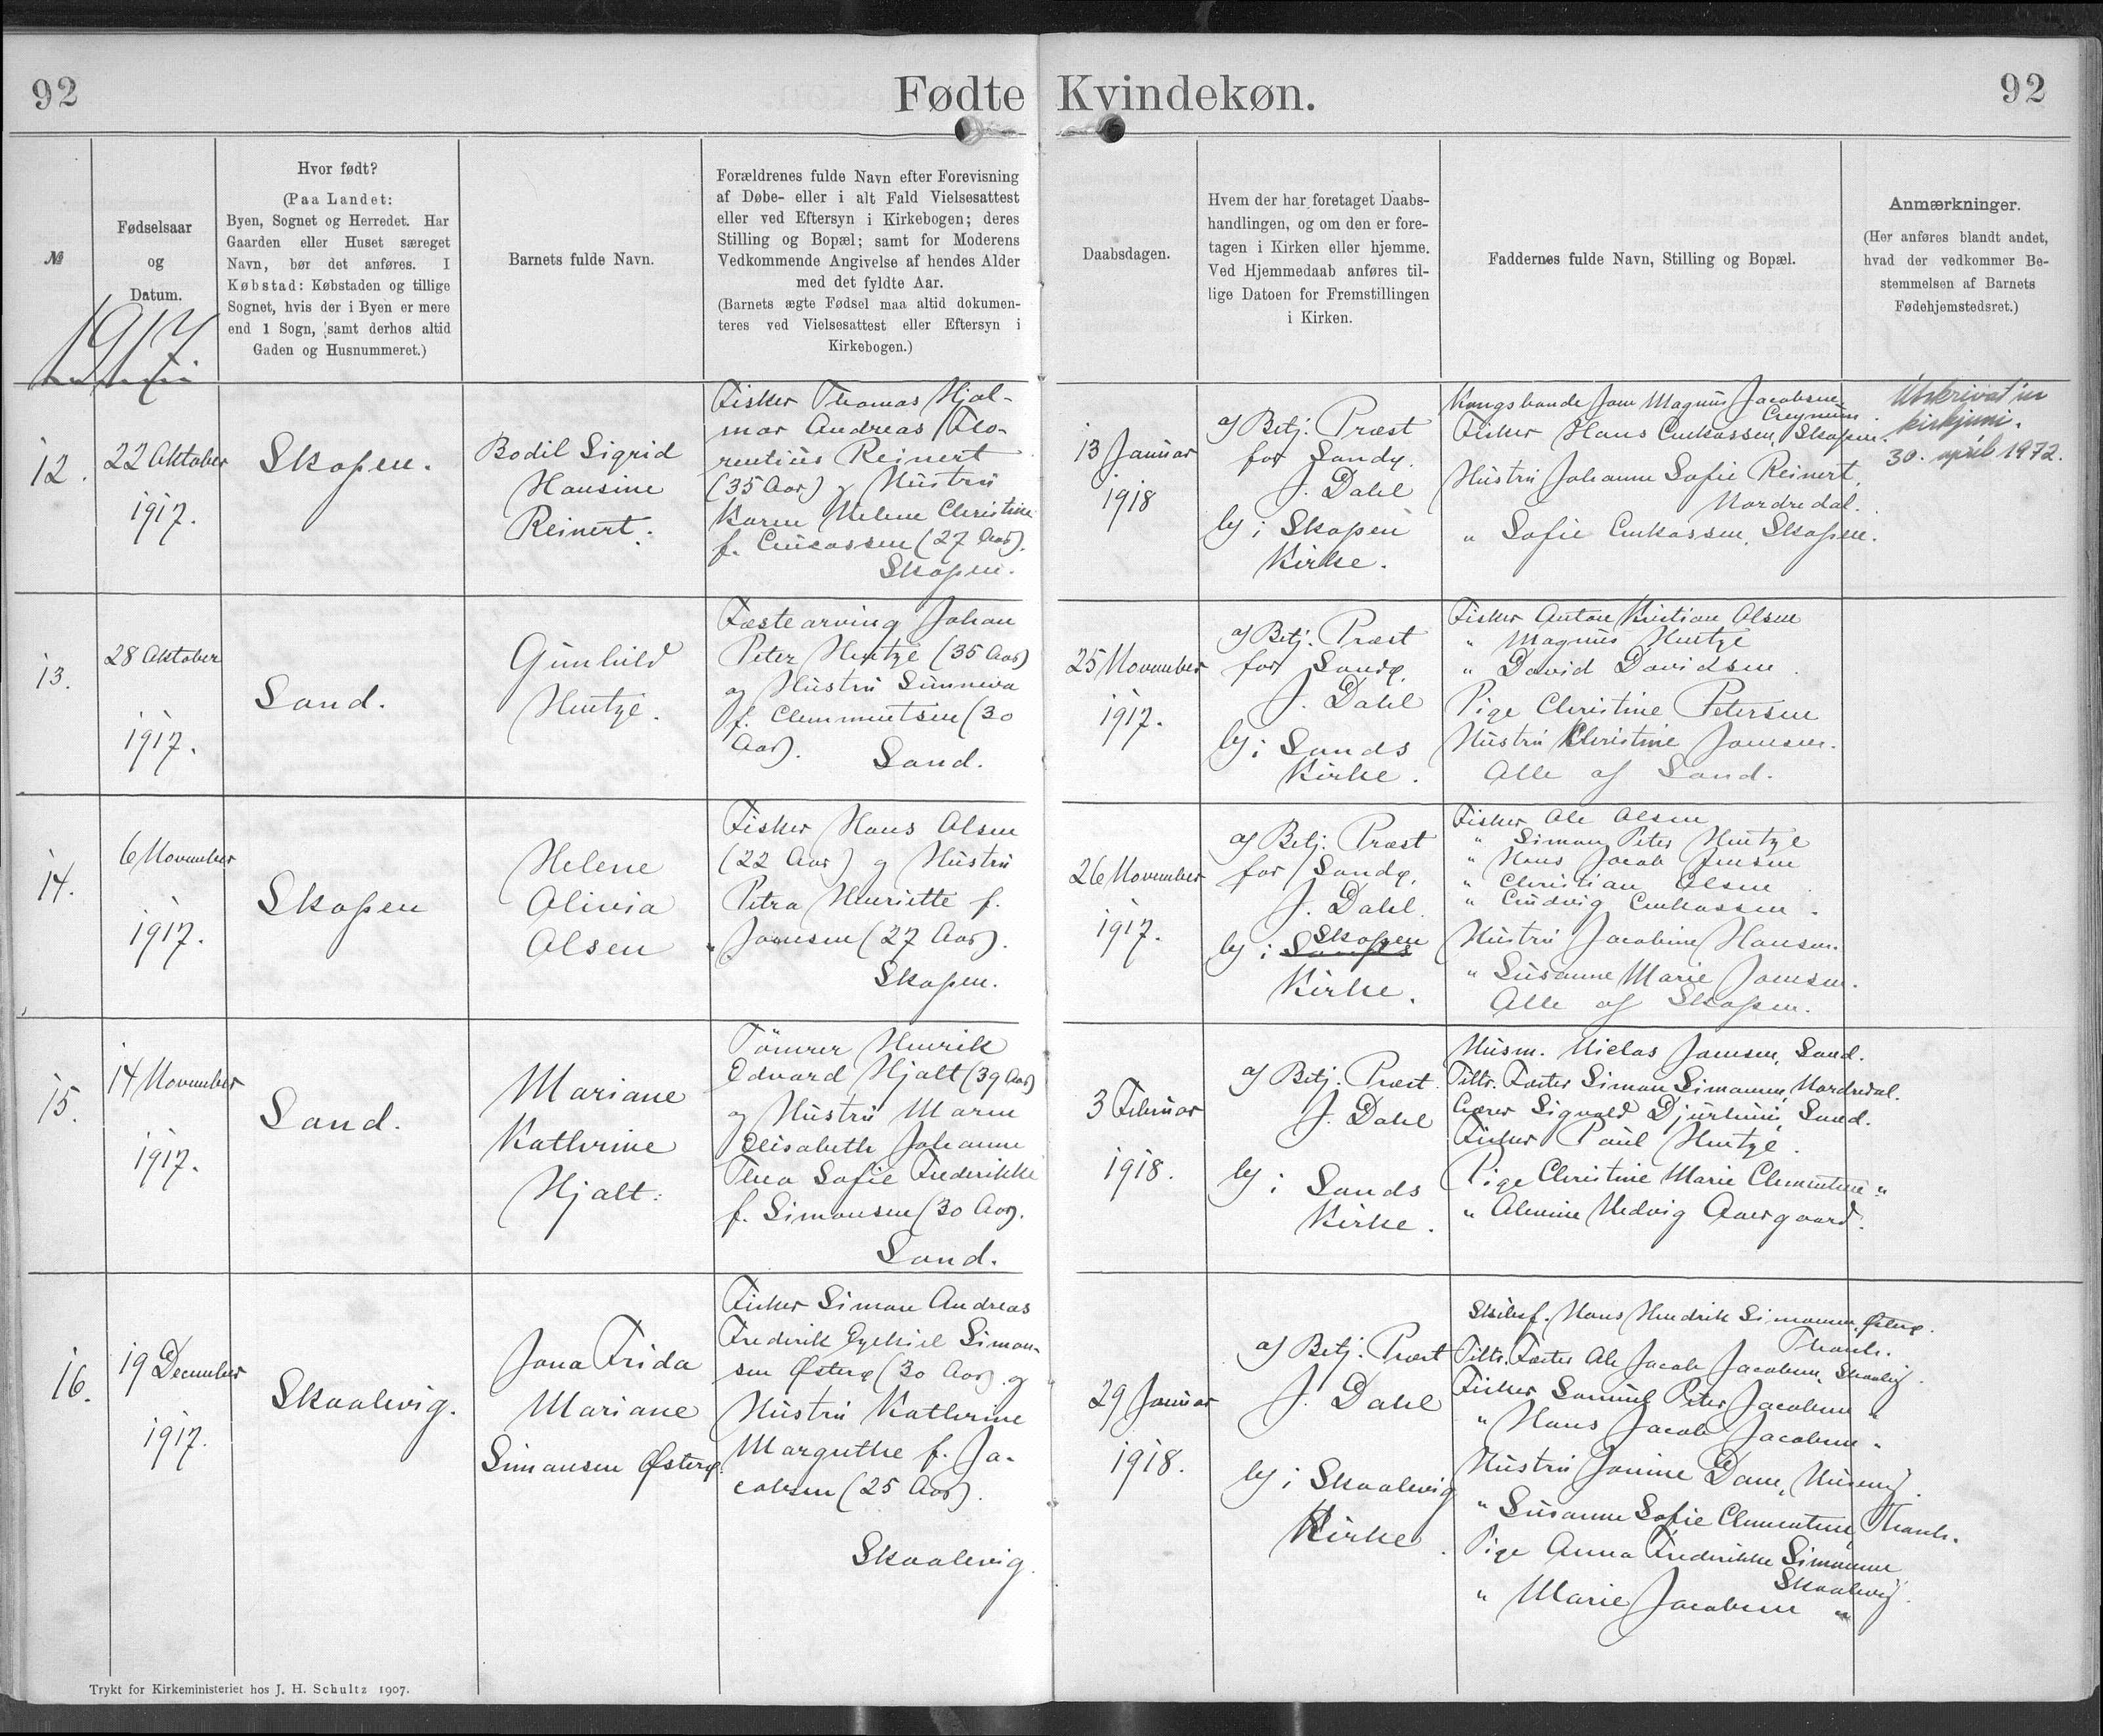 92
Fødte Kvindekøn.
92
№
Fødselsaar
og
Datum.
Hvor født?
(Paa Landet:
Byen, Sognet og Herredet. Har
Gaarden eller Huset særeget
Navn, bør det anføres. I
Købstad: Købstaden og tillige
Sognet, hvis der i Byen er mere
end 1 Sogn, samt derhos altid
Gaden og Husnummeret.)
Barnets fulde Navn.
Forældrenes fulde Navn efter Forevisning
af Døbe- eller i alt Fald Vielsesattest
eller ved Eftersyn i Kirkebogen; deres
Stilling og Bopæl; samt for Moderens
Vedkommende Angivelse af hendes Alder
med det fyldte Aar.
(Barnets ægte Fødsel maa altid dokumen-
teres ved Vielsesattest eller Eftersyn i
Kirkebogen.)
Daabsdagen.
Hvem der har foretaget Daabs-
handlingen, og om den er fore-
tagen i Kirken eller hjemme.
Ved Hjemmedaab anføres til-
lige Datoen for Fremstillingen
i Kirken.
Faddernes fulde Navn, Stilling og Bopæl.
Anmærkninger.
(Her anføres blandt andet,
hvad der vedkommer Be-
stemmelsen af Barnets
Fødehjemstedsret.)
1917
12.
22 Oktober
1917.
Skopen.
Bodil Sigrid
Hansine
Reinert.
Fisker Thomas Hjal-
mar Andreas Flo-
rentius Reinert
(35 Aar) og Hustru
Karen Helene Christine
f. (27 Aar).
Skopen.
13 Januar
1918
af Betj. Præst
for Sandø.
J. Dahl
by i Skopen
Kirke.
Kongsbonde Joen Magnus Jacobsen
Fisker Hans Skopen.
Hustru Johanne Sofie Reinert,
Nordredal.
" Sofie Skopen.
Útskrivað úr
kirkjuni.
30. apríl 1972.
13.
28 Oktober
1917.
Sand.
Gunhild
Hentze.
Fæstearving Johan
Peter Hentze (35 Aar)
og Hustru Sunneva
f. Clementsen (30
Aar).
Sand.
25 November
1917.
af Betj. Præst
for Sandø.
J. Dahl
by i Sands
Kirke.
Fisker Anton Kristian Olsen
" Magnus Hentze
" David Davidsen
Pige Christine Petersen
Hustru Christine Joensen.
Alle af Sand.
14.
6 November
1917.
Skopen
Helene
Olivia
Olsen
Fisker Hans Olsen
(22 Aar) og Hustru
Petra Henriette f.
Joensen (27 Aar).
Skopen.
26 November
1917.
af Betj. Præst
for Sandø.
J. Dahl.
Skopen
by i Sands
Kirke.
Fisker Ole Olsen
" Simon Peter Hentze
" Hans Jacob Jensen
" Christian Olsen
" Ludvig
Hustru Jacobine Hansen.
" Susanne Marie Joensen.
Alle af Skopen.
15.
14 November
1917.
Sand.
Mariane
Kathrine
Hjalt.
Tömrer Henrik
Edvard Hjalt (39 Aar)
og Hustru Maren
Elisabeth Johanne
Thea Sofie Frederikke
f. Simonsen (30 Aar).
Sand.
3 Februar
1918.
af Betj. Præst.
J. Dahl
by i Sands
Kirke.
Husm. Niclas Joensen, Sand.
Tiltr. Fæster Simon Simonsen, Nordredal.
Lærer Sigvald Djurhuus, Sand.
Fisker Paul Hentze.
Pige Christine Marie Clementsen "
" Hedvig
16.
19 December
1917.
Skaalevig.
Jona Frida
Mariane
Simonsen Østerø.
Fisker Simon Andreas
Frederik Ezekiel Simon-
sen Østerø (30 Aar) og
Hustru Kathrine
Margrethe f. Ja-
cobsen (25 Aar).
Skaalevig.
29 Januar
1918.
af Betj. Præst
J. Dahl
by i Skaalevig
Kirke.
Skibsf. Hans Hendrik Simonsen Østerø.
Thorsh.
Tiltr. Fæster Ole Jacob Jacobsen, Skaalevig.
Fisker Samuel Peter Jacobsen "
" Hans Jacob Jacobsen "
Hustru Jonine Dam, Husevig.
" Susanne Sofie Clementsen, Thorsh.
Pige Anna Frederikke Simonsen
Skaalevig.
" Marie Jacobsen "
Trykt for Kirkeministeriet hos J. H. Schultz 1907.